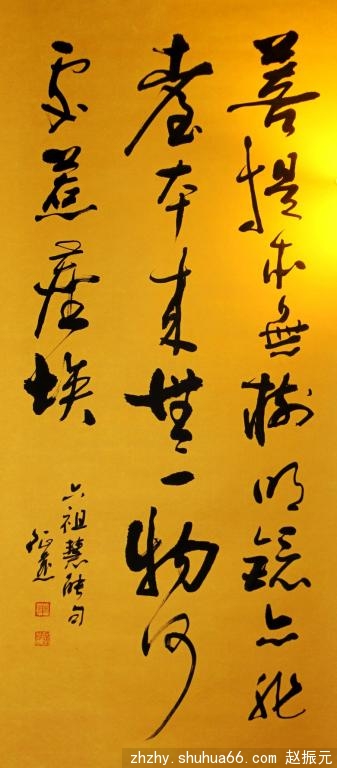 菩提本無樹明鏡亦非
臺本来無一物何
處惹塵埃
六祖慧能句
zhzhy.shuhua66.com 赵振元